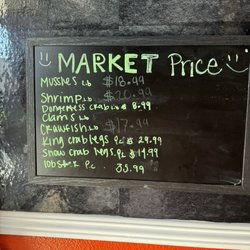 MARKET Price
Mussles LB $18.99
Shrimp LB $20.99
Dungeness crab LB $ 8.99
Clams LB
Crawfish LB $17.99
King crab legs Pc $ 29.99
Snow crab legs Pc $ 14.99
lobster Pc 35.99